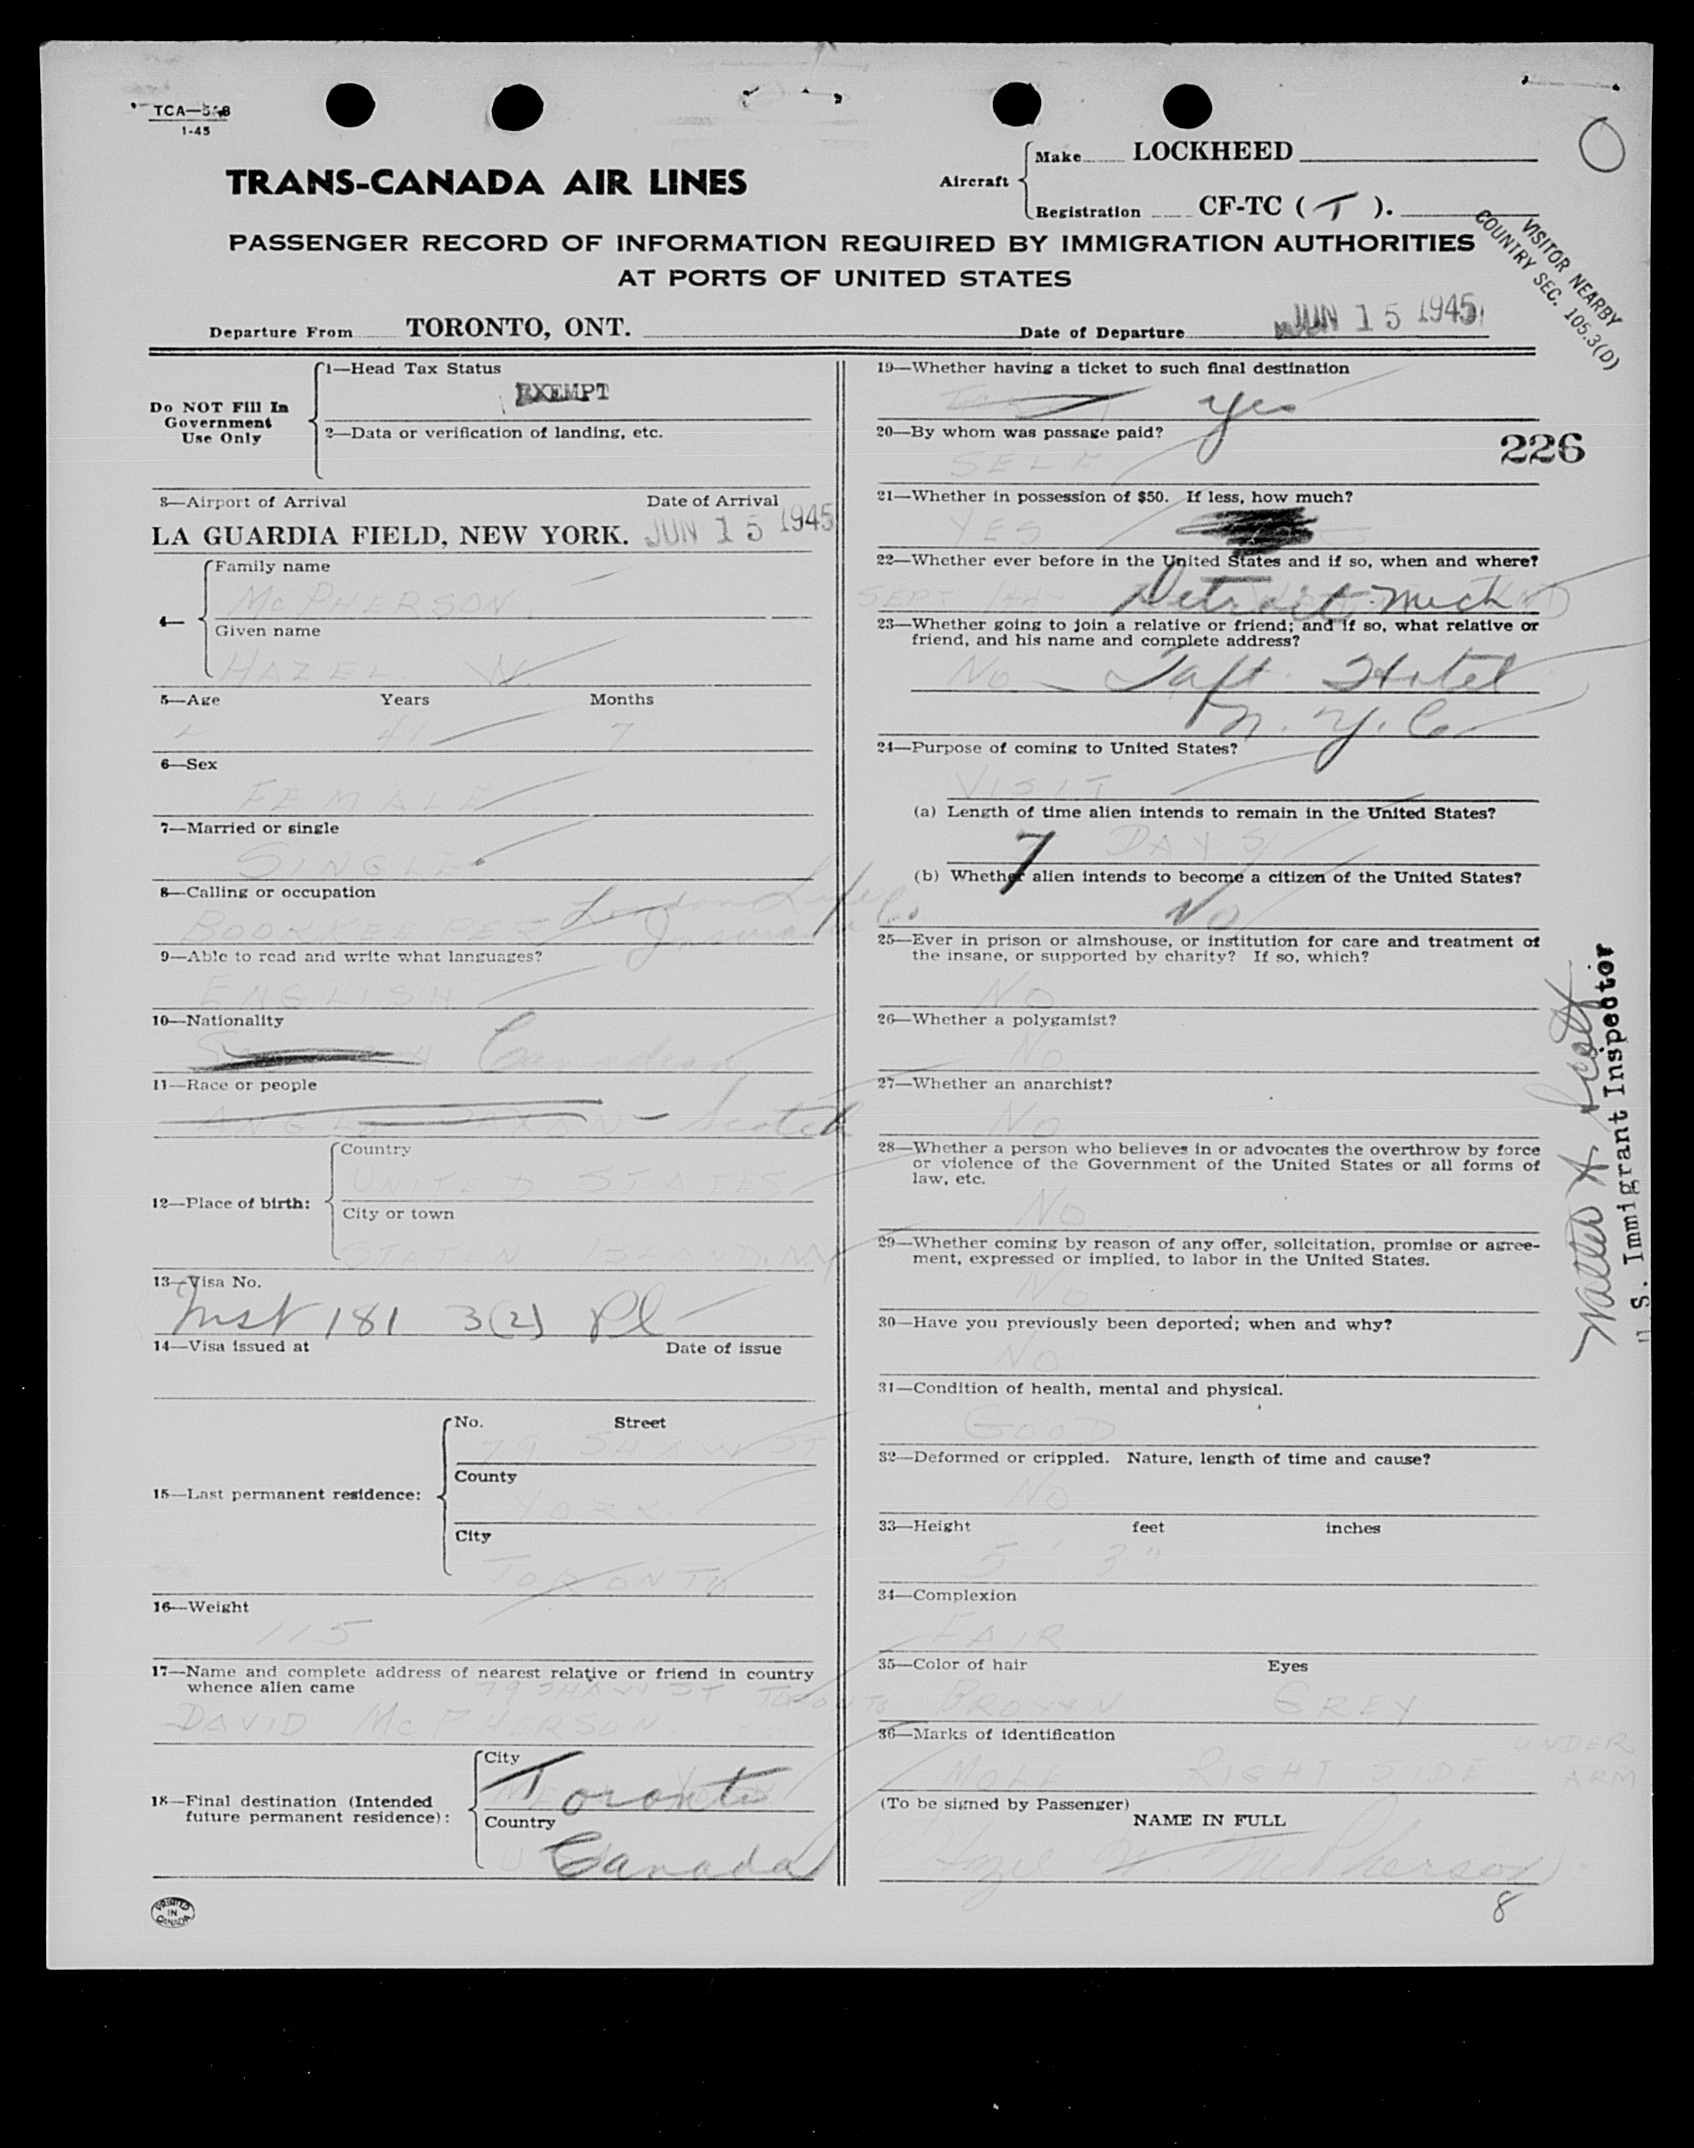 TCA—
1-45
TRANS-CANADA AIR LINES
Aircraft
Make LOCKHEED
Registration CF-TC ( T ).
PASSENGER RECORD OF INFORMATION REQUIRED BY IMMIGRATION AUTHORITIES
AT PORTS OF UNITED STATES
VISITOR NEARBY
COUNTRY SEC. 105.3(D)
Departure From TORONTO, ONT. Date of Departure JUN 15 1945
Do NOT Fill In
Government
Use Only
1—Head Tax Status
EXEMPT
2—Data or verification of landing, etc.
3—Airport of Arrival Date of Arrival
LA GUARDIA FIELD, NEW YORK. JUN 15 1945
4—
Family name
McPHERSON
Given name
HAZEL W.
5—Age Years Months
41 7
6—Sex
FEMALE
7—Married or single
SINGLE
8—Calling or occupation
BOOKKEEPER London Life Insurance Co
9—Able to read and write what languages?
ENGLISH
10—Nationality
Canadian
11—Race or people
ANGLO SAXAN - Scotch
12—Place of birth:
Country
UNITED STATES
City or town
STATEN ISLAND. NY
13—Visa No.
Inst 181 3(2) Pl
14—Visa issued at Date of issue
15—Last permanent residence:
No. Street
79 SHAW ST
County
YORK
City
TORONTO
16—Weight
115
17—Name and complete address of nearest relative or friend in country
whence alien came 79 SHAW ST TORONTO
DAVID McPHERSON.
18—Final destination (Intended
future permanent residence):
City
Toronto
Country
Canada
PRINTED
IN
CANADA
19—Whether having a ticket to such final destination
yes
20—By whom was passage paid?
SELF
226
21—Whether in possession of $50. If less, how much?
YES
22—Whether ever before in the United States and if so, when and where?
SEPT Detroit. Mich
23—Whether going to join a relative or friend; and if so, what relative or
friend, and his name and complete address?
No - Taft Hotel
N. Y. C.
24—Purpose of coming to United States?
VISIT
(a) Length of time alien intends to remain in the United States?
7 DAYS
(b) Whether alien intends to become a citizen of the United States?
NO
25—Ever in prison or almshouse, or institution for care and treatment of
the insane, or supported by charity? If so, which?
NO
26—Whether a polygamist?
NO
27—Whether an anarchist?
NO
28—Whether a person who believes in or advocates the overthrow by force
or violence of the Government of the United States or all forms of
law, etc.
NO
29—Whether coming by reason of any offer, solicitation, promise or agree-
ment, expressed or implied, to labor in the United States.
NO
30—Have you previously been deported; when and why?
NO
31—Condition of health, mental and physical.
GOOD
32—Deformed or crippled. Nature, length of time and cause?
NO
33—Height feet inches
5' 3"
34—Complexion
FAIR
35—Color of hair Eyes
BROWN GREY
36—Marks of identification
MOLE RIGHT SIDE UNDER ARM
(To be signed by Passenger)
NAME IN FULL
Hazel W McPherson
8
Walter A. Scott
U.S. Immigrant Inspector